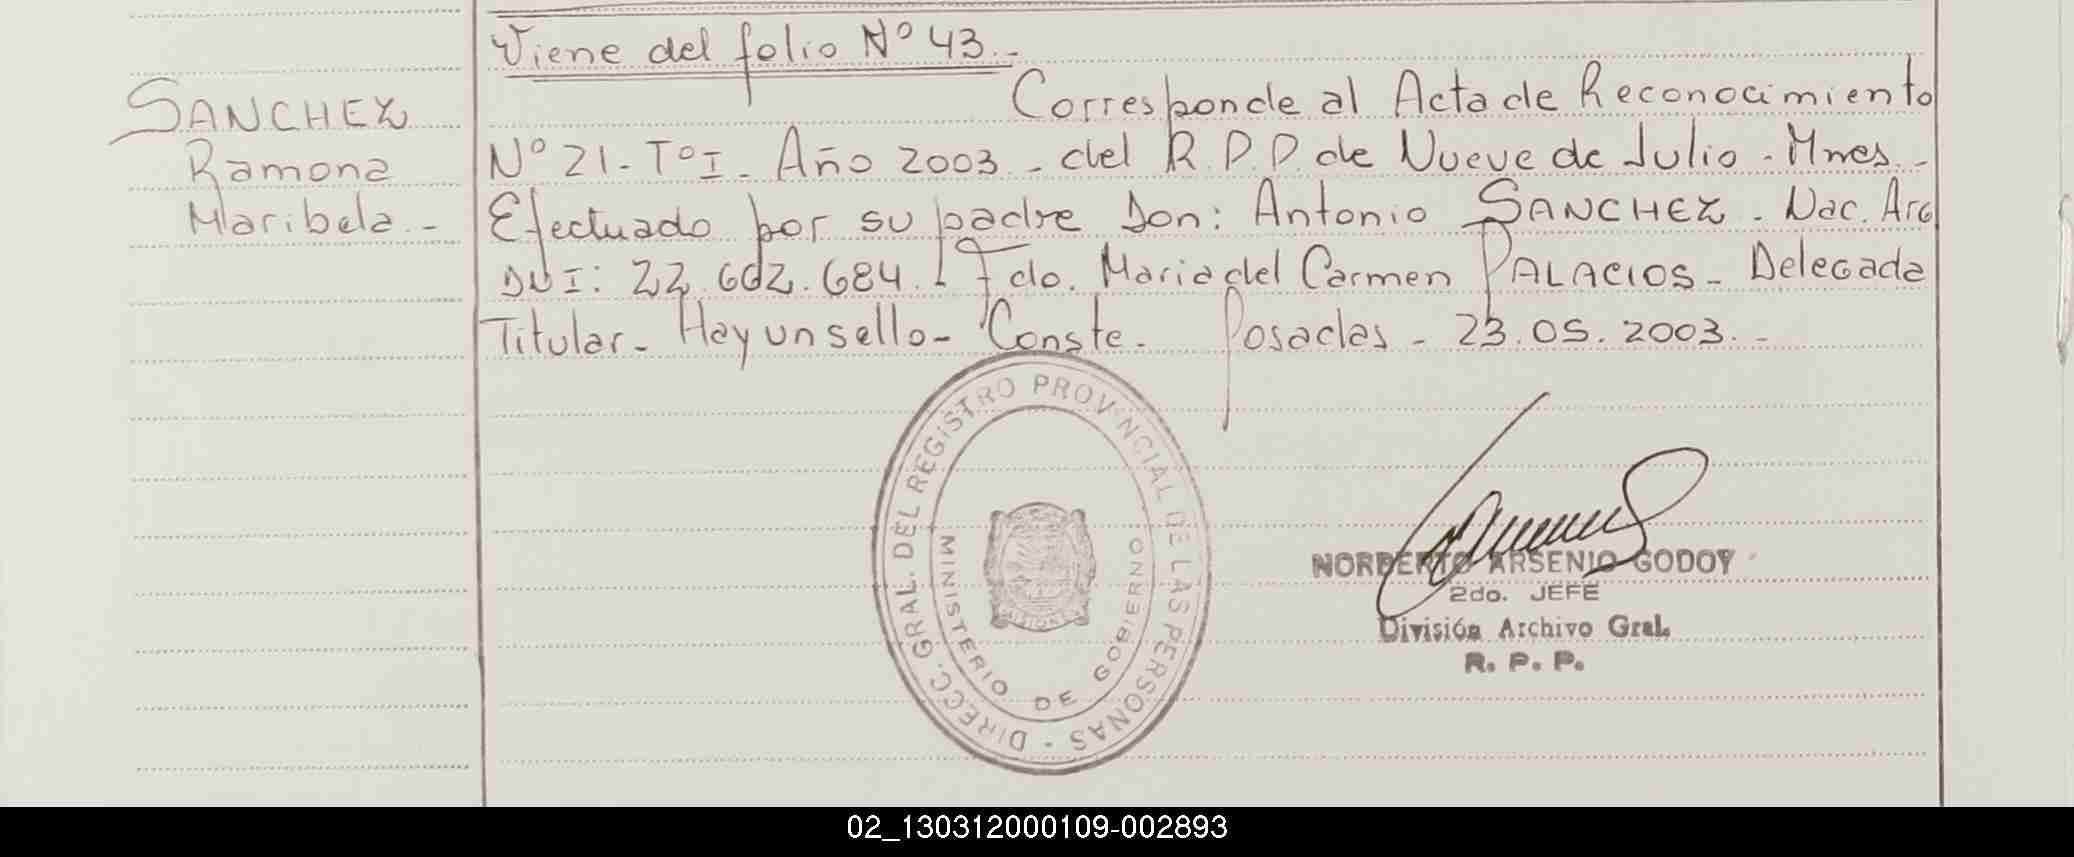 Viene del folio Nº 43.-
SANCHEZ
Ramona
Maribela.-
Corresponde al Acta de Reconocimiento
Nº 21- Tº I- Año 2003.- del R.P.P. de Nueve de Julio - Mnes.-
Efectuado por su padre Don: Antonio SANCHEZ. Nac. Arg
DNI: 22.662.684.- Fdo. Maria del Carmen PALACIOS- Delegada
Titular- Hay un sello- Conste. Posadas - 23.05.2003.-
DIRECC. GRAL. DEL REGISTRO PROVINCIAL DE LAS PERSONAS -
MINISTERIO DE GOBIERNO
MISIONES
NORBERTO ARSENIO GODOY
2do. JEFE
División Archivo Gral.
R. P. P.
02_130312000109-002893